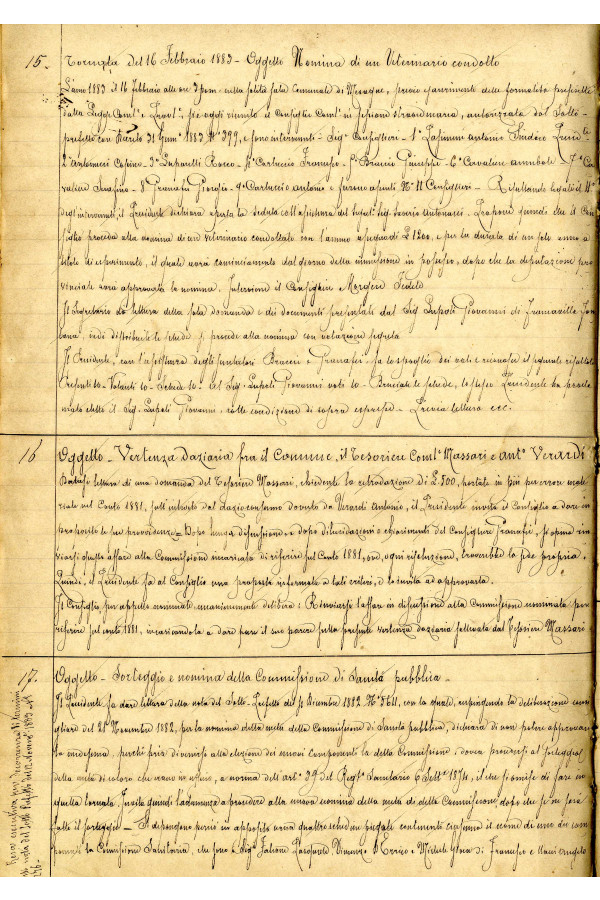 15. Tornata del 16 Febbraio 1883 - Oggetto Nomina di un Veterinario condotto
L'anno 1883 il 16 Febbraio alle ore 3 pom: nella solita sala Comunale di previo esaurimento delle formalità prescritte
dalla Legge Com.le e si è oggi riunito il Consiglio Com.le in sessione straordinaria, autorizzata dal Sotto-
prefetto con 31 Genn.o 1883 N.o 399, e sono intervenuti - Sig.i Consiglieri - 1.o Antonio Sindaco
2.o Antonucci 3.o Lupinelli Rocco - 4.o Carluccio Francesco - 5.o Giuseppe - 6.o Cavaliere Annibale 7.o Ca-
valiere Serafino - 8.o Granafei Giorgio - 9.o Carluccio Antonio e furono assenti N.o 11 Consiglieri - Risultando legale il N.o
degl'intervenuti, il Presidente dichiara aperta la seduta coll'assistenza del Segret.o Sig. Saverio Antonucci. Propone quindi che il Con-
siglio proceda alla nomina di un veterinario condottato con l'annuo assegno di L. 1200, e per la durata di un solo anno a
titolo di esperimento, il quale avrà cominciamento dal giorno della immissione in possesso, dopo che la deputazione pro-
vinciale avrà approvata la nomina. Interviene il Consigliere Morgese Fedele
Il Segretario dà lettura della sola domanda e dei documenti presentati dal Sig. Lupoli Giovanni di Francavilla Fon-
tana, indi distribuite le schede si procede alla nomina con votazione segreta
Il Presidente, con l'assistenza degli scrutatori e Granafei fa lo spoglio dei voti e riconosce il seguente risultato
Presenti 10 - Votanti 10 - Schede 10 - al Sig. Lupoli Giovanni voti 10 - Bruciate le schede, lo stesso Presidente ha procla-
mato eletto il Sig. Lupoli Giovanni, colle condizioni di sopra espresse - Previa lettura ecc.
16 Oggetto - Vertenza daziaria fra il Comune, il Tesoriere Com.le Massari e Ant.o Verardi
Datasi lettura di una domanda del Tesoriere Massari, chiedente la retrodazione di L. 500, portate in più per errore
nel Conto 1881, sull'introito del dazio consumo dovuto da Verardi Antonio, il Presidente invita il Consiglio a dare in
proposito le sue provvidenze = Dopo lunga discussione e dopo dilucidazioni e chiarimenti del Consigliere Granafei, si opina rin-
viarsi questo affare alla Commissione incaricata di riferire sul Conto 1881, ove, ogni risoluzione, troverebbe la sede propria.
Quindi, il Presidente fa al Consiglio una proposta informata a tali criteri, e lo invita ad approvarla.
Il Consiglio per appello nominale unanimemente delibera: Rinviarsi l'affare in discussione alla Commissione nominata per
riferire sul conto 1881, incaricandola a dare pure il suo parere sulla presente vertenza daziaria sollevata dal Tesoriere Massari
17. Oggetto - Sorteggio e nomina della Commissione di Sanità pubblica -
Il Presidente fa dare lettura della nota del Sotto-Prefetto del Dicembre 1882 N.o con la quale, respingendo la deliberazione consi-
gliare del 21 Novembre 1882, per la nomina della metà della Commissione di Sanità pubblica, dichiara di non potere approvare
la medesima, perchè pria di venirsi alla elezione dei nuovi componenti la detta Commissione, dovea procedersi al sorteggio
della metà di coloro che erano in ufficio, a norma dell'art.o 29 del Reg.to Sanitario 6 Sett.e 1874, il che si omise di fare in
quella tornata. Invita quindi l'adunanza a procedere alla nuova nomina della metà di detta Commissione dopo che se ne sarà
fatto il sorteggio - Si depongono perciò in apposita urna quattro schedine piegate contenenti ciascuna il nome di uno dei com-
ponenti la Commissione Sanitaria, che sono i Sig.i Falcone Pasquale, Vincenzo D'Errico e Michele di Francesco e